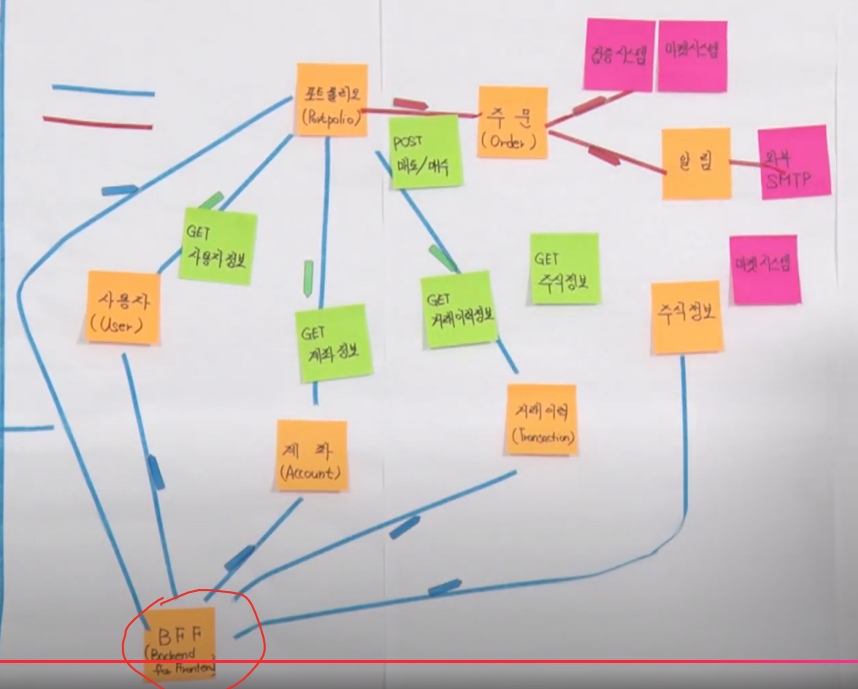 검증시스템
마켓시스템
포트폴리오
(Portpolio)
주문
(Order)
POST
매도/매수
알림
외부
SMTP
GET
사용자정보
GET
주식정보
마켓시스템
사용자
(User)
GET
계좌정보
GET
거래이력정보
주식정보
계좌
(Account)
거래이력
(Transaction)
BFF
(Backend
for Frontend)